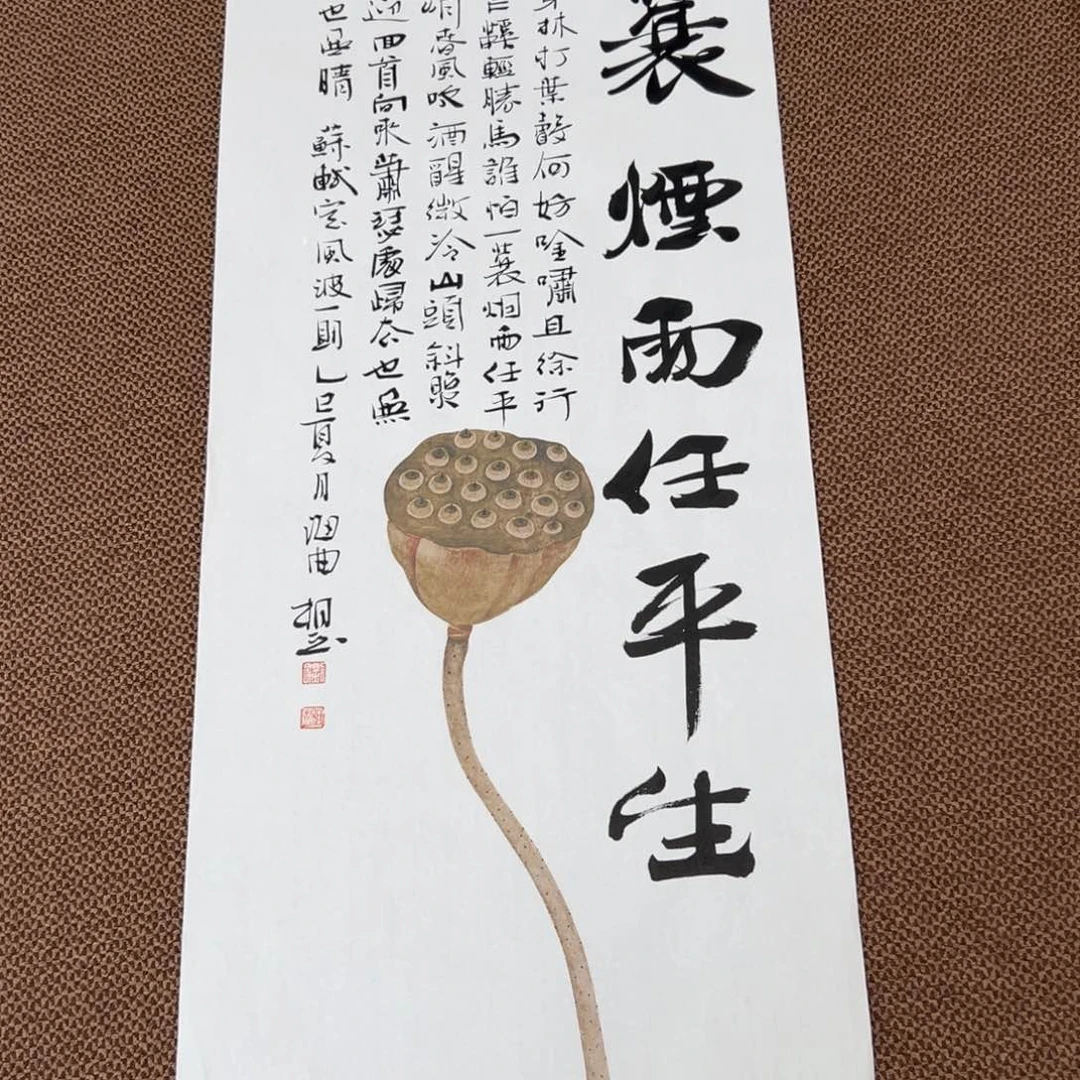 蓑煙雨任平生
林打葉聲何妨吟嘯且徐行
鞵輕勝馬誰怕一蓑烟雨任平
峭春風吹酒醒微冷山頭斜照
迎回首向來蕭瑟處歸去也無
也無晴 蘇軾定風波一則乙巳夏月海曲